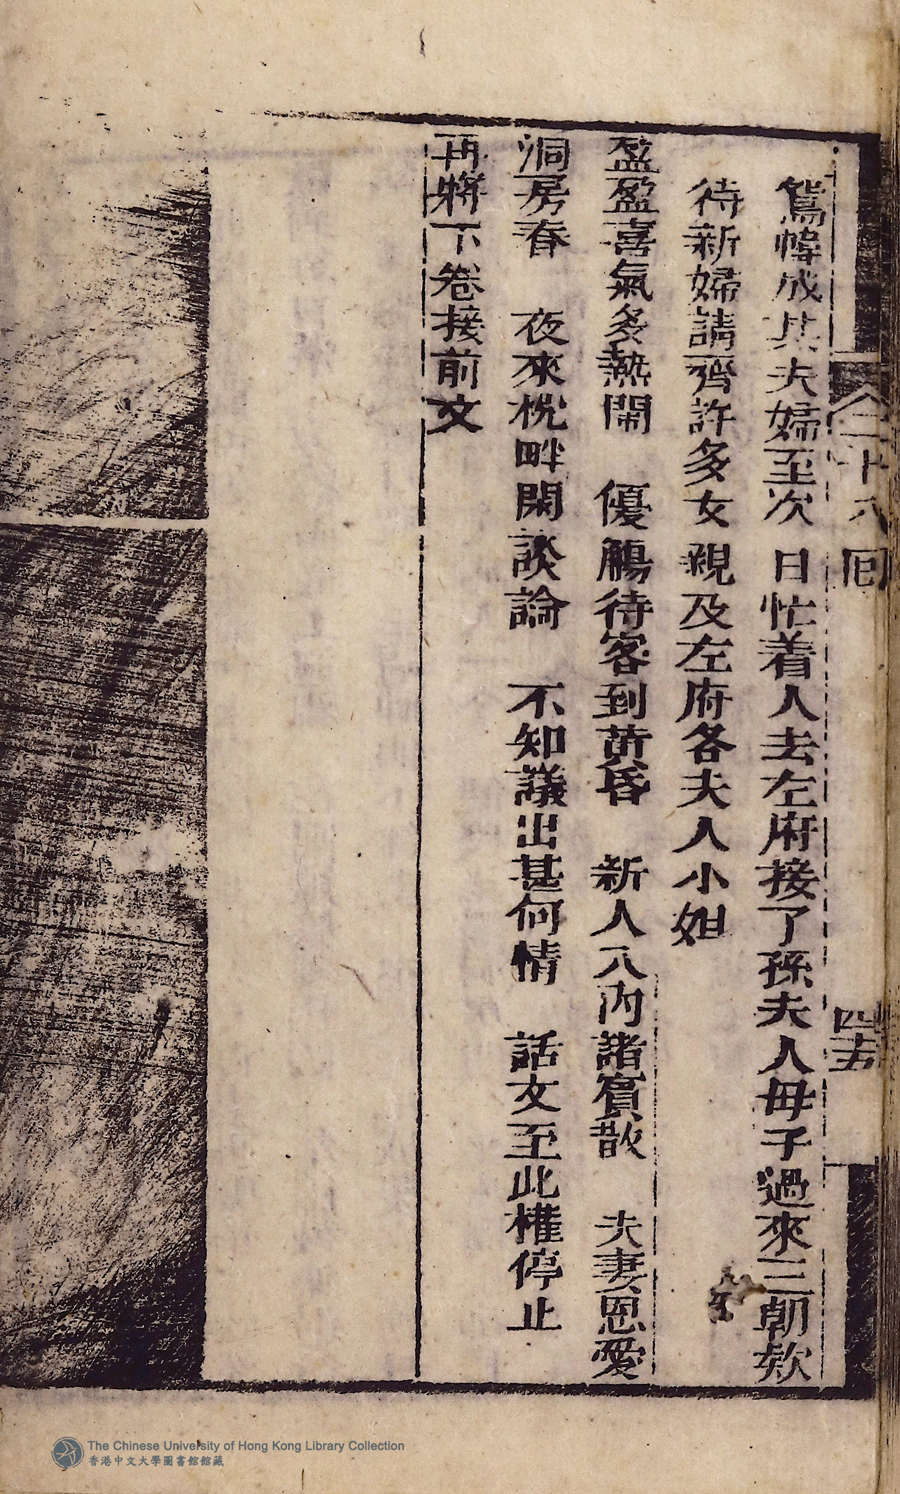 二十八回
四十五
鴛幃成其夫婦至次日忙着人去左府接了孫夫人母子過來三朝欵
待新婦請齊許多女親及左府各夫人小姐
盈盈喜氣多熱鬧　優觴待客到黃昏　新人入內諸賓散　夫妻恩愛
洞房春　夜來枕畔閑談論　不知議出甚何情　話文至此權停止
再將下卷接前文
The Chinese University of Hong Kong Library Collection
香港中文大學圖書館館藏